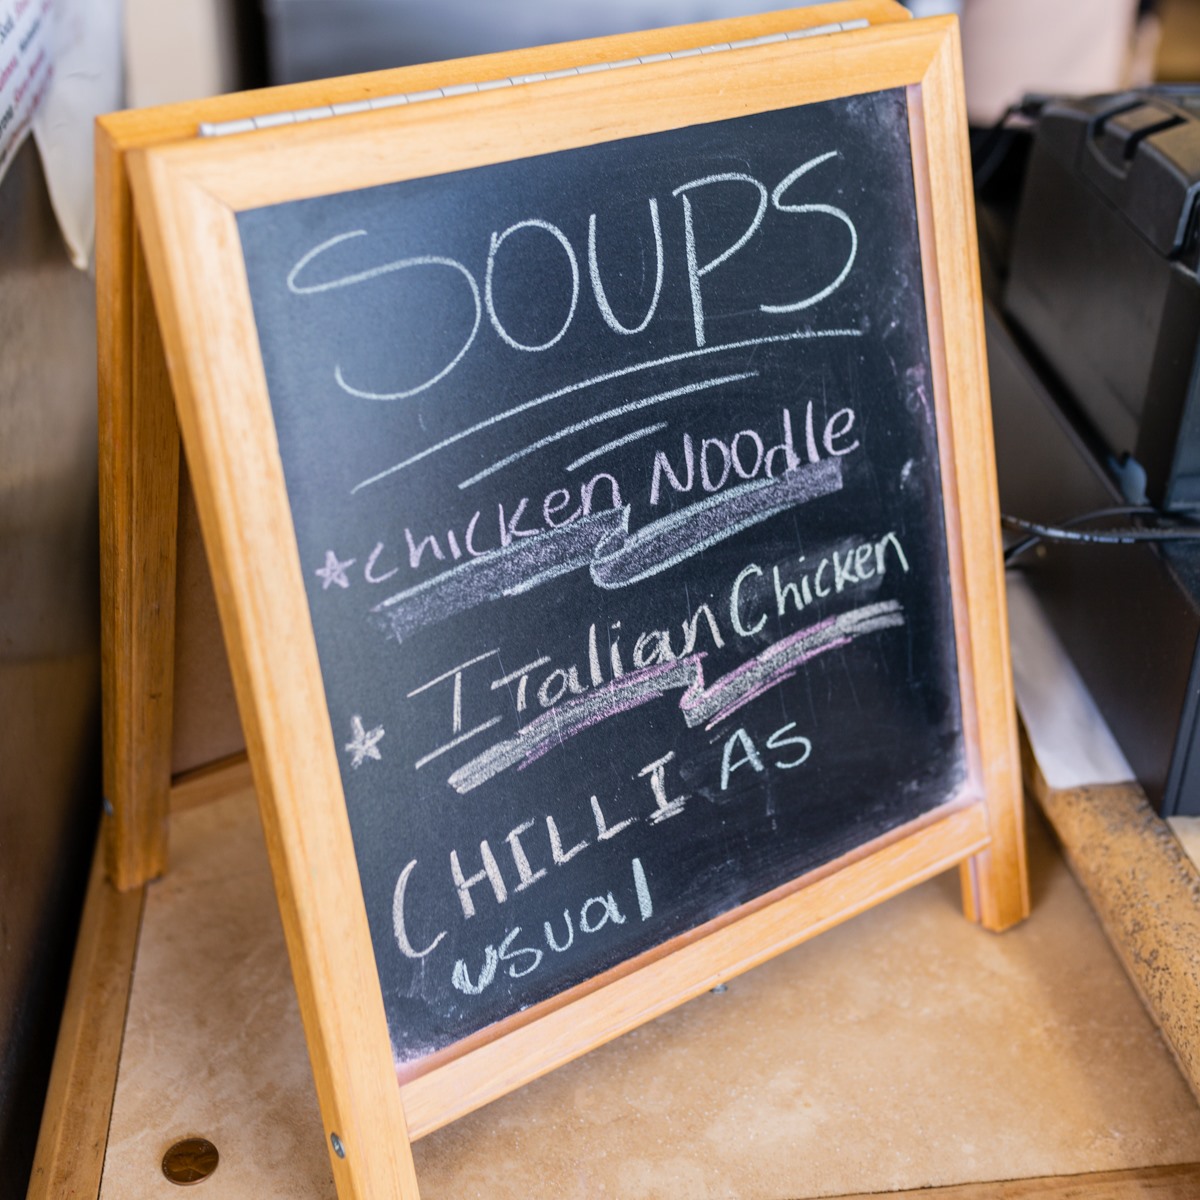 SOUPS
Chicken Noodle
Italian Chicken
CHILLI As
usual